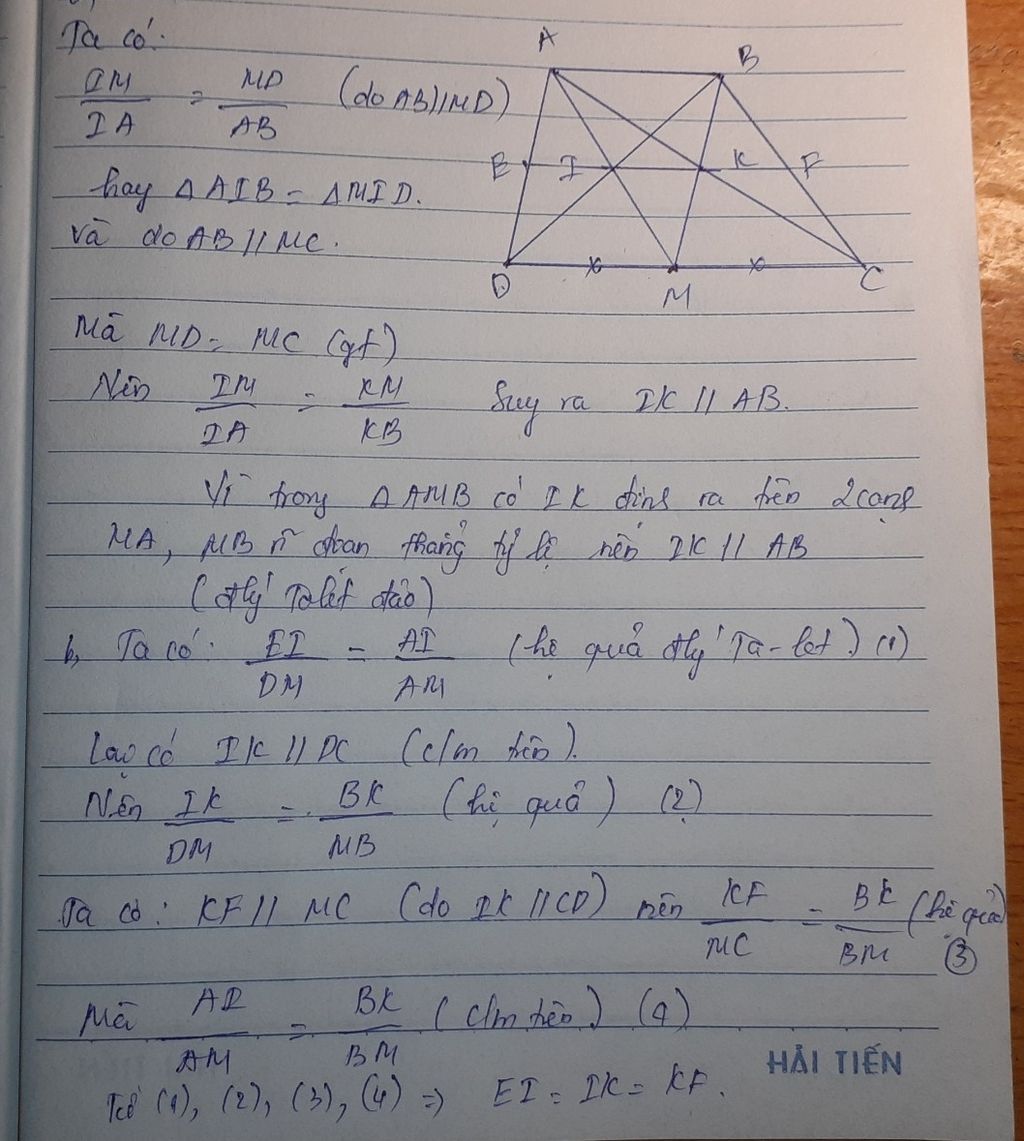 Ta có:
IM/IA = MD/AB (do AB//MD)
hay △AIB = △MID.
và do AB // MC.
A
B
E I K F
D M C
Mà MD = MC (gt)
Nên IM/IA = KM/KB Suy ra IK // AB.
Vì trong △AMB có IK định ra trên 2 cạnh
MA, MB ~ đoạn thẳng tỷ lệ nên IK // AB
(đlý Talét đảo)
b, Ta có: EI/DM = AI/AM (hệ quả đlý Ta-let) (1)
Lại có IK // DC (c/m trên).
Nên IK/DM = BK/MB (hệ quả) (2)
Ta có: KF // MC (do IK // CD) nên KF/MC = BK/BM (hệ quả)
(3)
Mà AI/AM = BK/BM (c/m trên) (4)
Từ (1), (2), (3), (4) => EI = IK = KF.
HẢI TIẾN